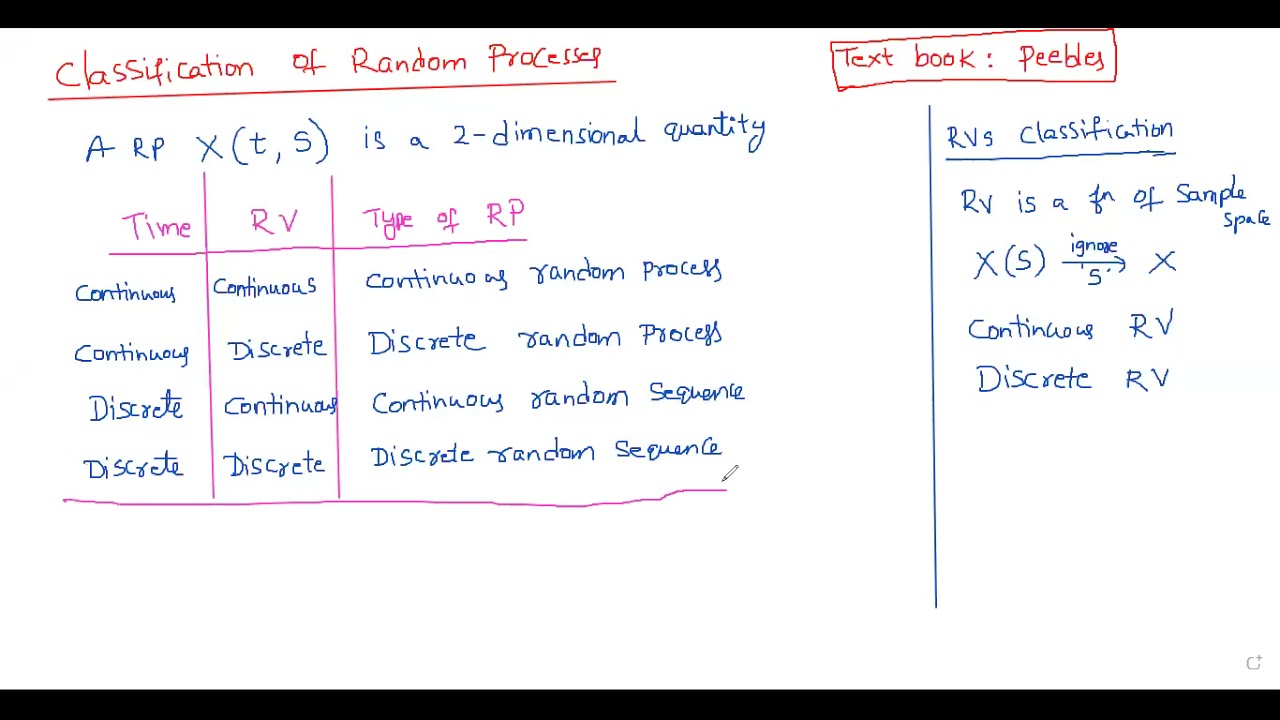 Classification of Random Processes
Text book: Peebles
A RP X(t, S) is a 2-dimensional quantity
Time RV Type of RP
Continuous Continuous Continuous random process
Continuous Discrete Discrete random Process
Discrete Continuous Continuous random Sequence
Discrete Discrete Discrete random Sequence
RVs Classification
RV is a fn of Sample
Space
X(S) ignore 'S' → X
Continuous RV
Discrete RV